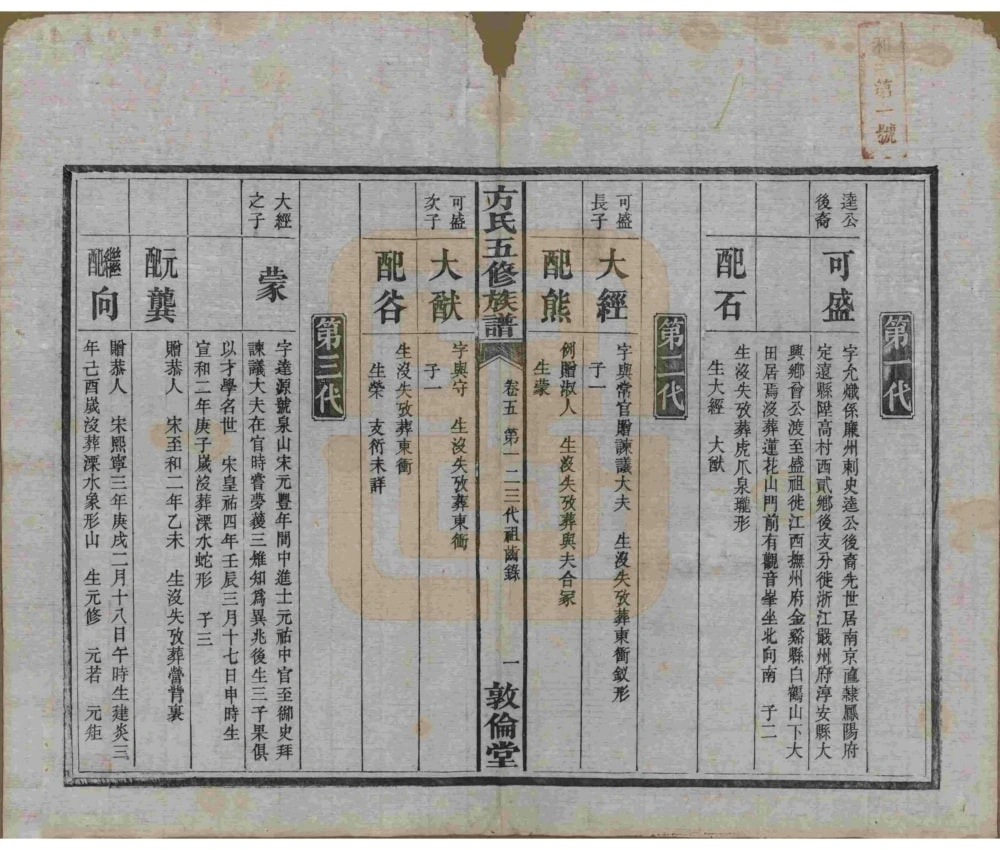 和第一號
第一代
逵公
後裔
可盛
字允熾係廉州刺史逵公後裔先世居南京直隸鳳陽府
定遠縣陞高村西貳鄉後支分徙浙江嚴州府淳安縣大
興鄉曾公渡至盛祖徙江西撫州府金谿縣白鶴山下大
田居焉沒葬蓮花山門前有觀音峯坐北向南 子二
配石
生沒失攷葬虎爪泉瓏形
生大經 大猷
第二代
可盛
長子
大經
字與常官贈諫議大夫 生沒失攷葬東衝釵形
子一
配熊
例贈淑人 生沒失攷葬與夫合冢
生蒙
方氏五修族譜
卷五 第一二三代祖齒錄
一
敦倫堂
可盛
次子
大猷
字與守 生沒失攷葬東衝
子一
配谷
生沒失攷葬東衝
生榮 支衍未詳
第三代
大經
之子
蒙
字達源號泉山宋元豐年間中進士元祐中官至御史拜
諫議大夫在官時嘗夢薐三雉知爲異兆後生三子果俱
以才學名世 宋皇祐四年壬辰三月十七日申時生
宣和二年庚子歲沒葬溧水蛇形 子三
元配龔
贈恭人 宋至和二年乙未 生沒失攷葬當背裏
繼配向
贈恭人 宋熙寧三年庚戌二月十八日午時生建炎三
年己酉歲沒葬溧水象形山 生元修 元若 元矩